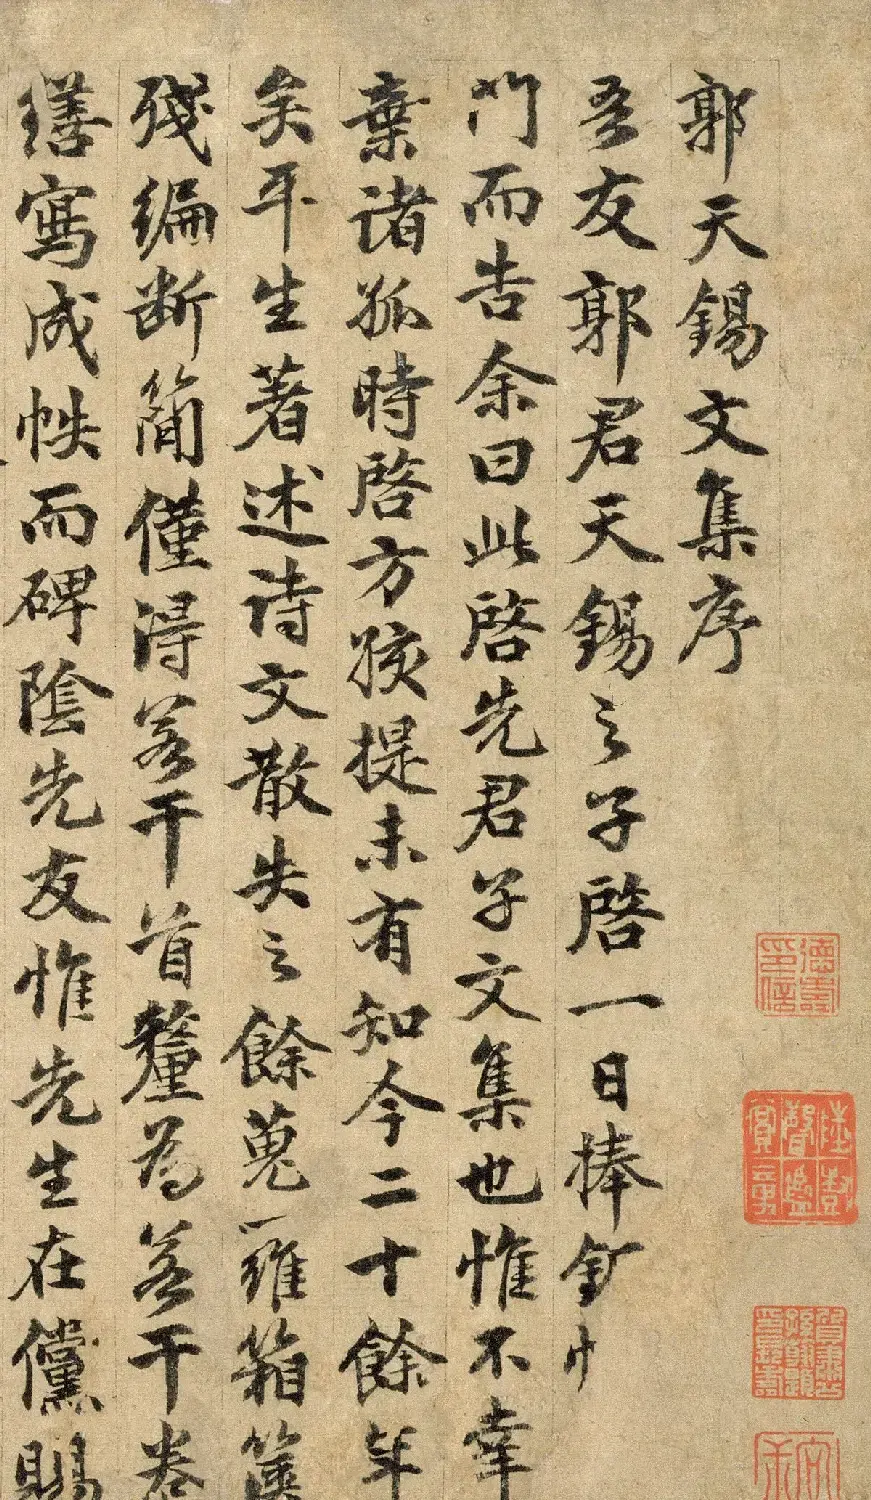 郭天錫文集序
吾友郭君天錫之子啓一日捧
門而告余曰此啓先君子文集也惟不幸
棄諸孤時啓方孩提未有知今二十餘年
矣平生著述詩文散失之餘蒐羅箱篋
殘編断簡僅得若干首釐為若干卷
繕寫成帙而碑陰先友惟先生在儻賜
德壽印信